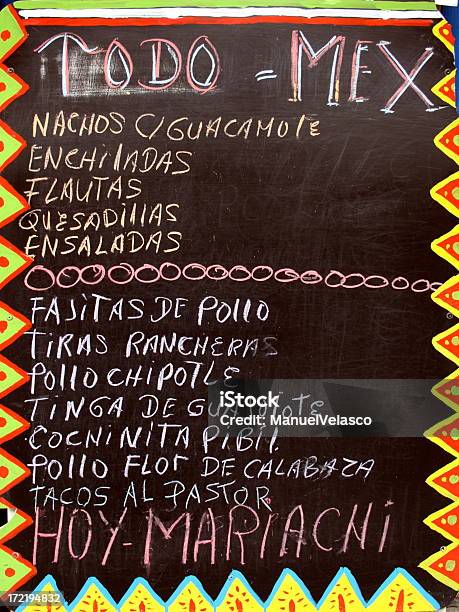 TODO = MEX
NACHOS C/GUACAMOLE
ENCHILADAS
FLAUTAS
QUESADILLAS
ENSALADAS
FAJITAS DE POLLO
TIRAS RANCHERAS
POLLO CHIPOTLE
TINGA DE GUAJOLOTE
COCHINITA PIBIL
POLLO FLOR DE CALABAZA
TACOS AL PASTOR
HOY-MARIACHI
iStock
Credit: ManuelVelasco
172194832